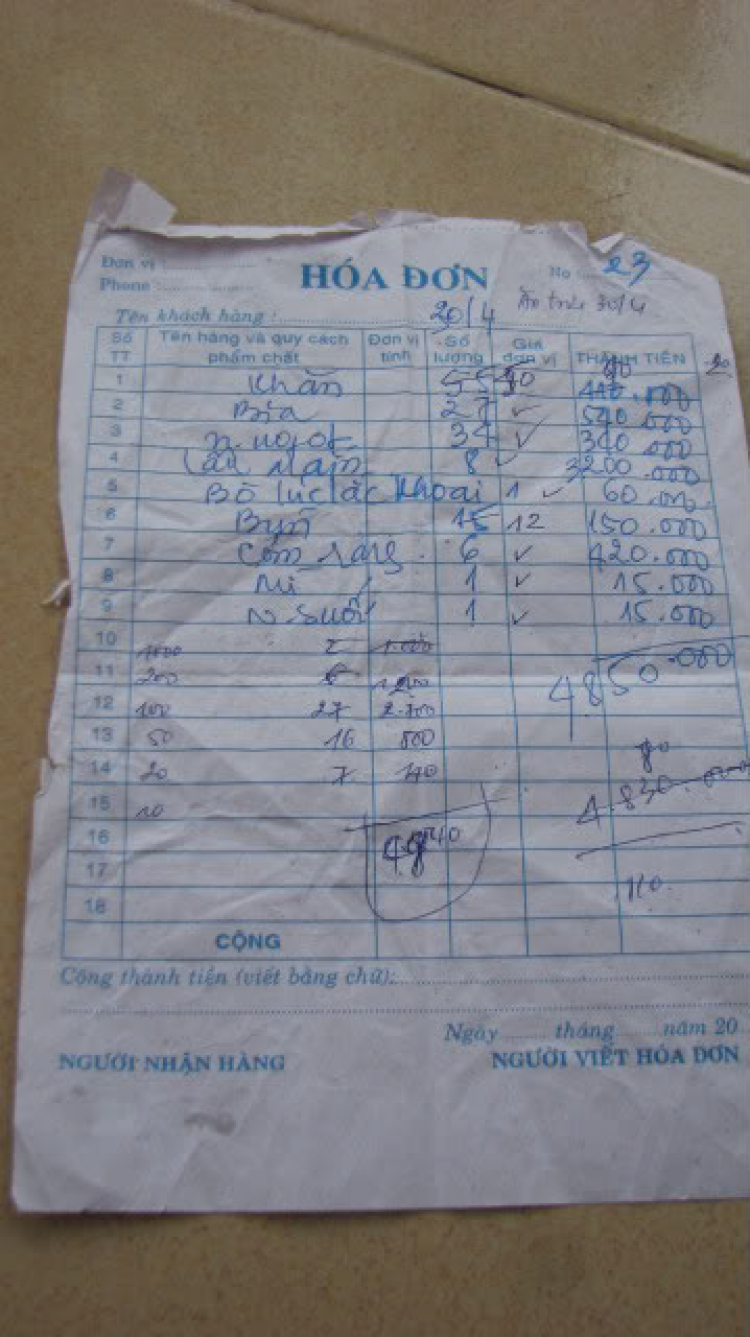 Đơn vị :
HÓA ĐƠN
No : 23
Phone :
Ăn trưa 30/4
Tên khách hàng : 20/4
Số TT Tên hàng và quy cách phẩm chất Đơn vị tính Số lượng Giá đơn vị THÀNH TIỀN
1 Khăn 55
2 Bia 27 540.000
3 n. ngọt 34 340.000
4 Lẩu 8 3200.000
5 Bò lúc lắc khoai 1 60.000
6 Bún 15 12 150.000
7 Cơm rang 6 420.000
8 Mì 1 15.000
9 N suối 1 15.000
10
11 200 6 1.200 4850.000
12 100 27 2.700
13 50 16 800
14 20 7 140
15 10 4.830.000
16
17 110
18
CỘNG
Cộng thành tiền (viết bằng chữ):
Ngày tháng năm 20
NGƯỜI NHẬN HÀNG NGƯỜI VIẾT HÓA ĐƠN